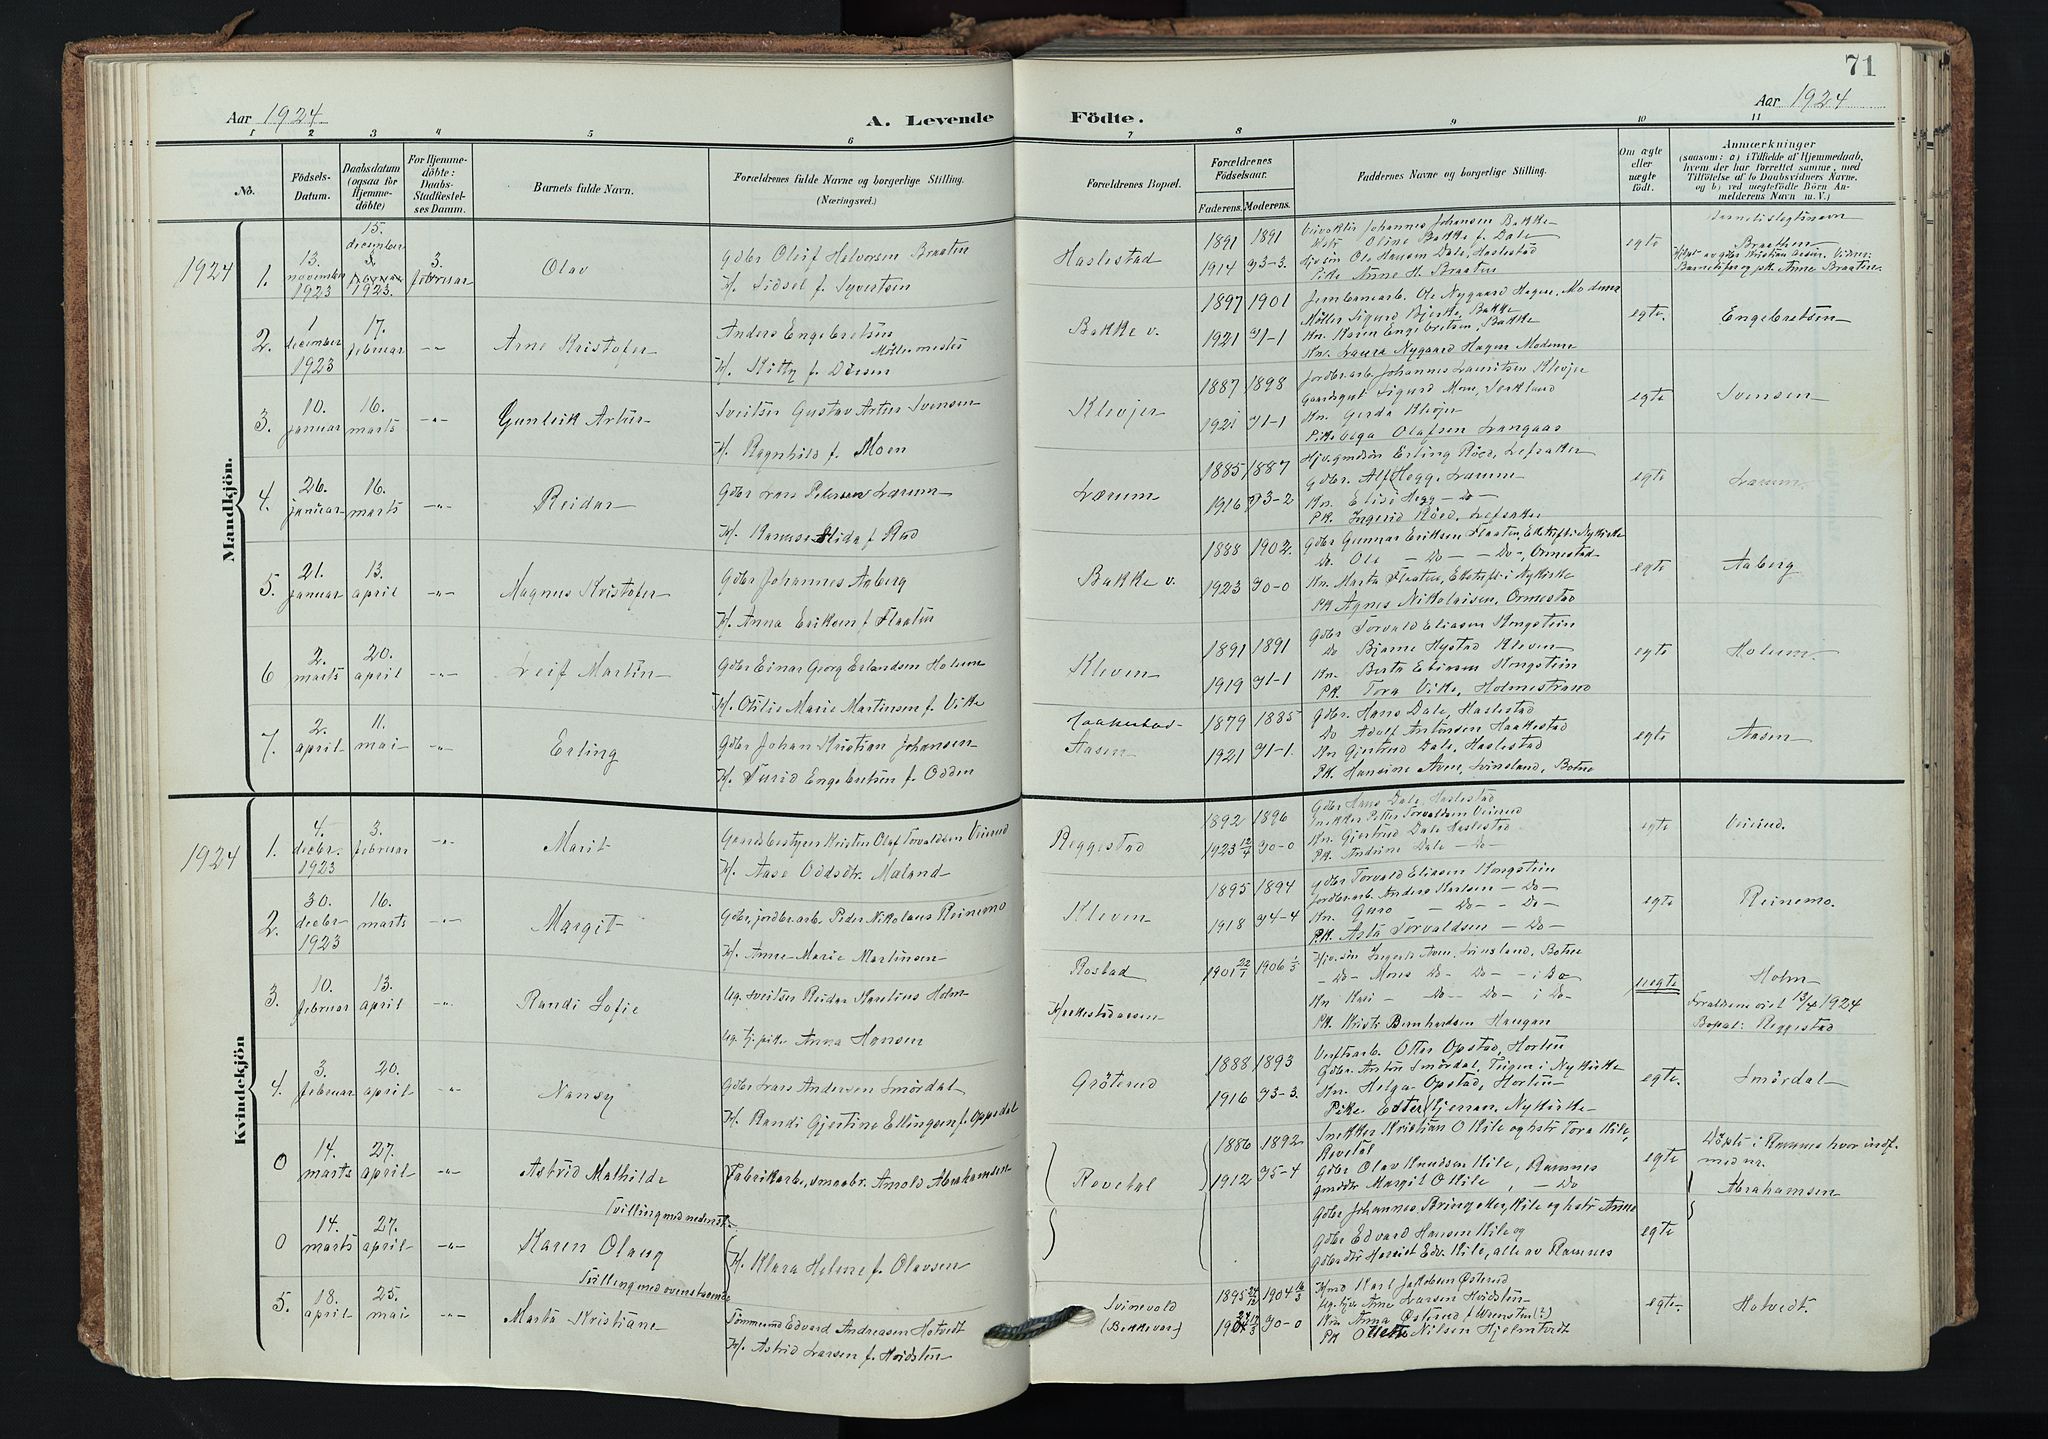 71
Aar 1924
A. Levende
Födte.
Aar 1924
1 2 3 4 5 6 7 8 9 10 11
No.
Födsels-
Datum.
Daabsdatum
(ogsaa for
Hjemme-
döbte)
For Hjemme-
döbte:
Daabs-
Stadfæstel-
ses Datum.
Barnets fulde Navn.
Forældrenes fulde Navne og borgerlige Stilling.
(Næringsvei.)
Forældrenes Bopæl.
Forældrenes
Födselsaar.
Faderens. Moderens.
Faddernes Navne og borgerlige Stilling.
Om ægte
eller
uægte
födt.
Anmærkninger
(saasom: a) i Tilfælde af Hjemmedaab,
hvem der har forrettet samme, med
Tilföielse af to Daabsvidners Navne,
og b) ved uegtefödte Börn An-
melderens Navn m. V.)
Mandkjön.
1924
1.
13.
november
1923
15.
december
1923.
3.
februar
Olav
Gdbr Oleif Halvorsen Braaten
H. Sidsel f. Syvertsen
Haslestad
1891 1891
1914 93-3.
Johannes Johansen Bakke
Oline Bakke f. Dale
Ole Hansen Dale, Haslestad
Pike Anne H. Braaten
egte
Barnets slegtsnavn
Braathen
Anne Braaten.
2.
1
december
1923
17.
februar
-"-
Arne Kristofer
Anders Engebretsen
Möllermester
H. Kitty f. Dörsen
Bakke v.
1897 1901
1921 91-1
Jernbanearb. Ole Nygaard Hagen, Modum
Möller Sigurd Bjerke, Bakke
Kn. Karen Engebretsen, Bakke
Kn. Laura Nygaard Hagen Modum
egte.
Engebretsen
3.
10.
januar
16.
marts
-"-
Gunleik Artur
Sveitser Gustav Artur Svensen
H. Ragnhild f. Moen
Klevjer
1887 1898
1921 91-1
Jordbr.arb. Johannes Lauritsen Klevjer
Gaardsgut Sigurd Moen,
Kn. Gerda Klevjer
Olafsen Langaas
egte
Svensen
4.
26.
januar
16.
marts
-"-
Reidar
Gdbr Lars Petersen Lærum
H. Alida f. Rød
Lærum
1885 1887
1916 93-2
Hjv. gmdsön Erling Röed, Lefsaker
Gdbr. Alf Hegg, Lærum
Kn. Elise Hegg -Do-
PK. Ingerid Röed, Lefsaker
egte
Lærum.
5.
21.
januar
13.
april
-"-
Magnus Kristofer
Gdbr Johannes Aaberg
H. Anna Eriksen f. Flaaten
Bakke v.
1888 1902.
1923 90-0
Gdbr Gunnar Eriksen Flaaten, Nykirke
Do. Ole -Do- -Do-, Ormestad
Kn. Marta Flaaten, i Nykirke
PK Agnes Nikolaisen, Ormestad
egte
Aaberg
6
2.
marts
20.
april
-"-
Leif Martin
Gdbr Einar Georg Erlandsen Holum
H. Otilie Marie Martinsen f. Vike
Kleven
1891 1891
1919 91-1
Gdbr Torvald Eliasen Kongstein
Do Bjarne Hystad Kleven
Kn. Berta Eliasen Kongstein
PK. Tora Vike, Holmestrand
egte
Holum.
7.
2.
april
11.
mai
-"-
Erling
Gdbr Johan Kristian Johansen
H. Turid Engebretsen f. Odden
Haakestad-
Aasen
1879 1885
1921 91-1.
Gdbr. Hans Dale, Haslestad
Do Adolf Antonsen Haakestad
Kn Gjertrud Dale, Haslestad
PK. Hansine Aven, Svinsland, Botne
egte
Aasen
Kvindekjön
1924
1.
4.
decbr.
1923
3.
februar
-"-
Marit
Gaardbestyrer Kristen Olaf Torvaldsen Veierud
H. Aase Oddsdtr. Maland
Reggestad
1892 1896
1923 12/4 90-0
Gdbr Hans Dale, Haslestad
Snekker Petter Torvaldsen Veierud
Kn. Gjertrud Dale Haslestad
PK. Andrine Dale -Do-
egte
Veierud.
2.
30.
decbr
1923
16.
marts
-"-
Margit
Gdbr, jordbr.arb. Peder Nikolaus Reinemo
H. Anne-Marie Martinsen
Kleven
1895 1894
1918 94-4
Gdbr Torvald Eliasen Kongstein
Jordbr.arb. Anders Karlsen -Do-
Kn. Guro -Do- -Do-
PK. Asta Torvaldsen -Do-
egte
Reinemo.
3.
10.
februar
13.
april
-"-
Randi Sofie
Ug. sveitser Reidar Karelius Holm
Ug. tj. pike Anna Hansen
Rostad
Haakestadaasen
1901 22/1 1906 1/3
Aven, Svinsland, Botne
-Do- Mons -Do- -Do- -i Do
Kn Kari -Do- -Do- i Do-
PK. Kristi Bernhardsen Haugan
uegte
Holm
Foreldrene viet 13/4 1924
Bopæl: Reggestad
4.
3.
februar
20.
april
-"-
Nansy
Gdbr Lars Andersen Smördal
H. Randi Gjertine Ellingsen f. Oppedal
Gröterud
1888 1893
1916 93-3.
Verftsarb. Otter Opstad, Horten
Gdbr. Anton Smördal, Teigen i Nykirke
Kn. Helga Opstad, Horten
Pike. Ester Kjerran, Nykirke
egte.
Smördal
0
14.
marts
27.
april
-"-
Astrid Mathilde
Tvilling med nedenst.
Fabrikarb., smaabr. Arnold Abrahamsen
Revetal
1886 1892
1912 95-4
Snekker Kristian O Kile og hstr Tora Kile,
Revetal
Gdbr Olav Knudsen Kile, Ramnes
Margit O Kile, -Do
egte
Döpt i Ramnes hvor indf.
med nr.
Abrahamsen
0
14.
marts
27.
april
-"-
Karen Olaug
Tvilling med ovenstaaende
H. Klara Helene f. Olavsen
Gdbr Johannes Bringaker, Kile og hstr Anna
Gdbr Edvard Hansen Kile og
Gdbrdtr Harriet Edv. Kile, alle av Ramnes
egte
5.
18.
april
25.
mai
-"-
Marta Kristiane
Tömmermd Edvard Andreasen Hotvedt
H. Astrid Larsen f. Hvidsten
Svinevold
(Bakkevar)
1895 1904
90-0
Karl Jakobsen Österud
Anne Larsen Hvidsten
Kn. Anna Österud f. Wrensten (?)
PK Nilsen Hjelmtvedt
egte-
Hotvedt.